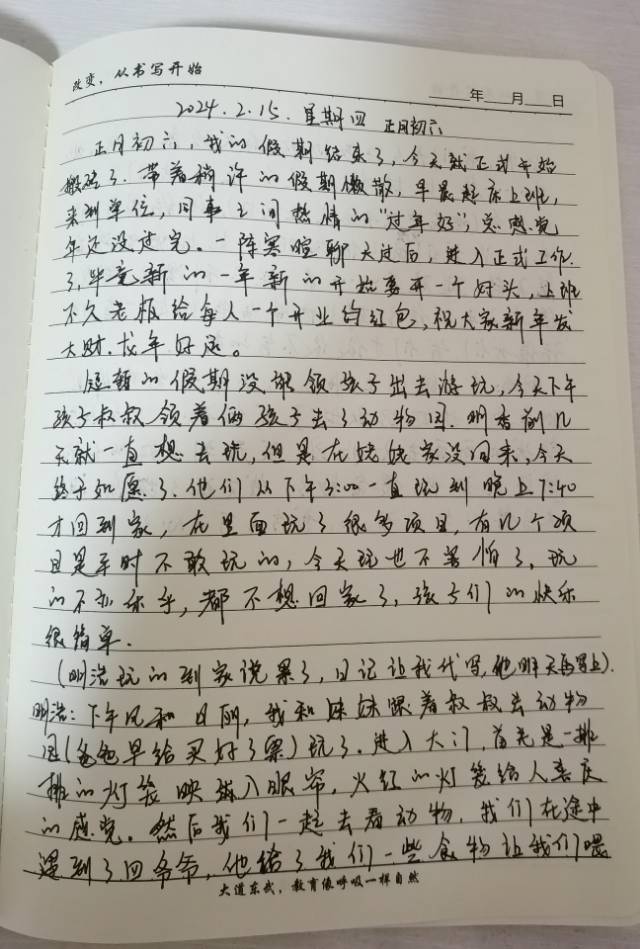 改变，从书写开始
年 月 日
2024.2.15.星期四 正月初六
正月初六，我的假期结束了，今天就正式开始
搬砖了。带着稍许的假期懒散，早晨起床上班，
来到单位，同事之间热情的“过年好”，总感觉
年还没过完。一阵寒暄聊天过后，进入正式工作
了，毕竟新的一年新的开始要开一个好头，上班
不久老板给每人一个开业的红包，祝大家新年发
大财，龙年好运。
短暂的假期没带领孩子出去游玩，今天下午
孩子叔叔领着俩孩子去了动物园。明香前几
天就一直想去玩，但是在姥姥家没回来，今天
终于如愿了。他们从下午3:00一直玩到晚上7:40
才回到家，在里面玩了很多项目，有几个项
目是平时不敢玩的，今天玩也不害怕了。玩
的不亦乐乎，都不想回家了，孩子们的快乐
很简单.
(明浩玩的到家说累了，日记让我代写，他明天再写上).
明浩：下午风和日丽，我和妹妹跟着叔叔去动物
园(爸爸早给买好了票)玩了。进入大门，首先是一排
排的灯笼映入眼帘，火红的灯笼给人喜庆
的感觉。然后我们一起去看动物，我们在途中
遇到了四爷爷，他给了我们一些食物让我们喂
大道东武，教育像呼吸一样自然